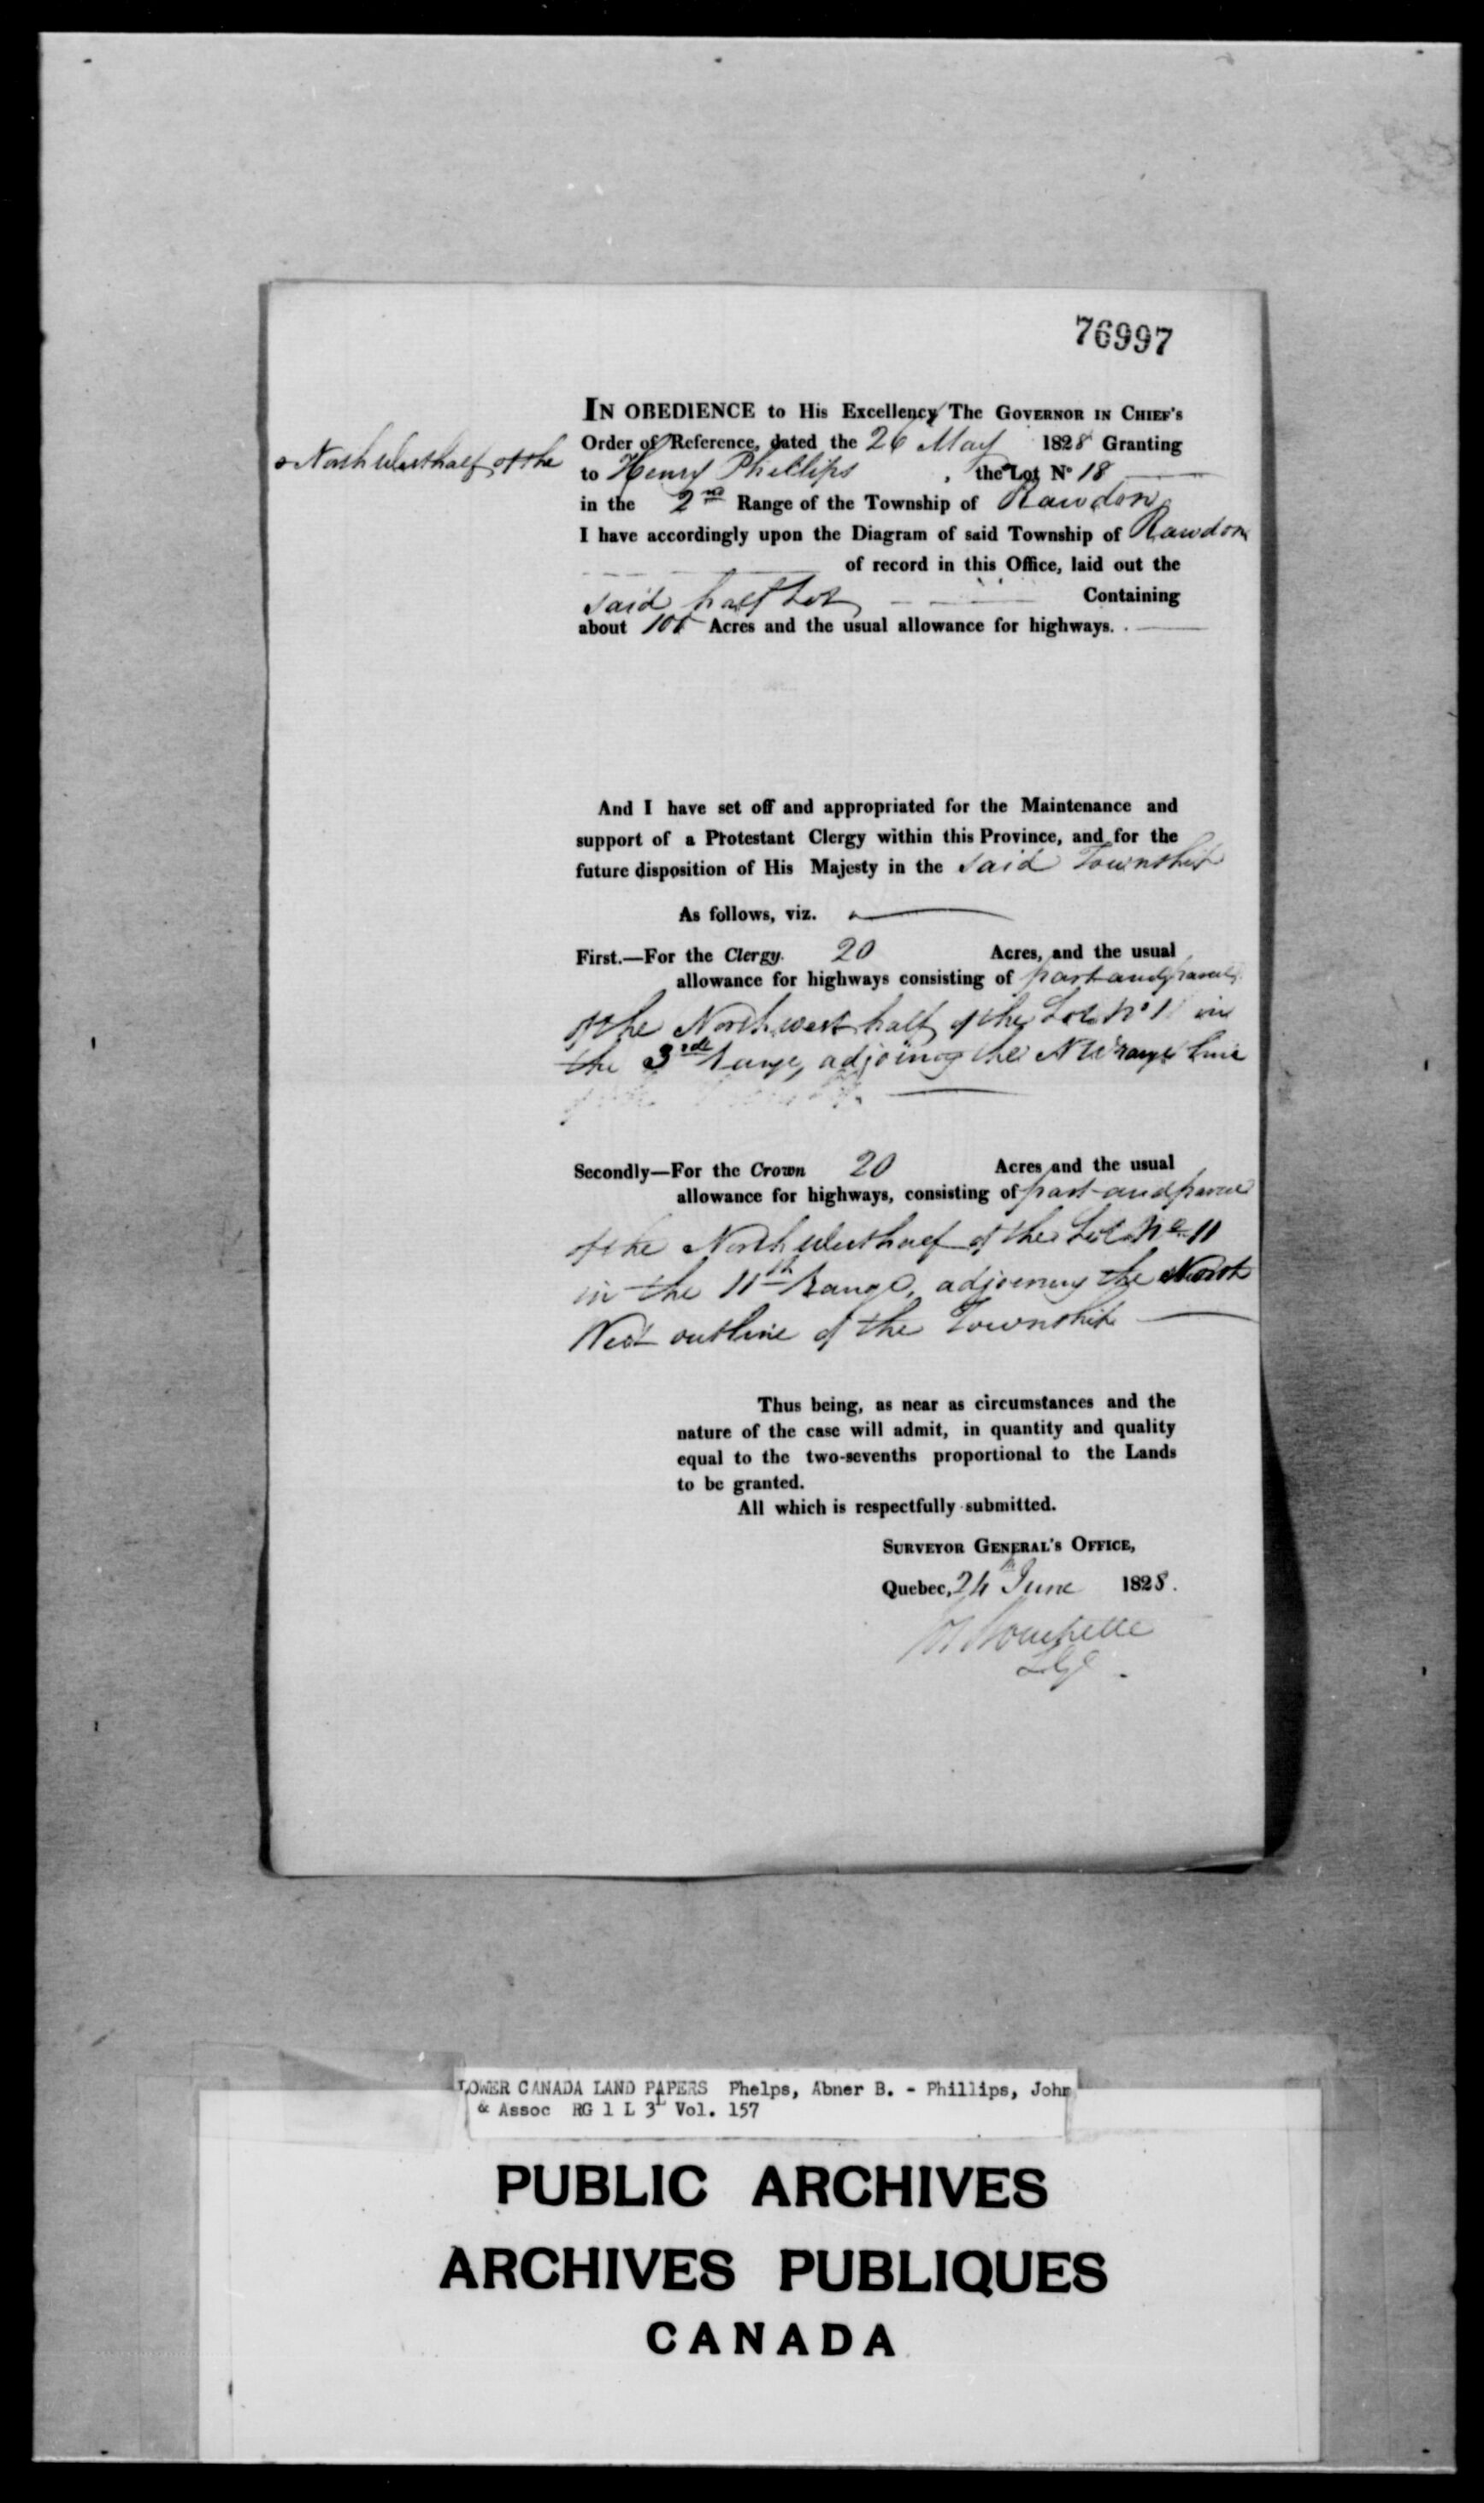 76997
IN OBEDIENCE to His Excellency The GOVERNOR IN CHIEF'S
Order of Reference, dated the 26 May 1828 Granting
North West half of the
to Henry Phillips, the Lot No 18
in the 2nd Range of the Township of Rawdon
I have accordingly upon the Diagram of said Township of Rawdon
of record in this Office, laid out the
said half Lot Containing
about Acres and the usual allowance for highways.
And I have set off and appropriated for the Maintenance and
support of a Protestant Clergy within this Province, and for the
future disposition of His Majesty in the said Township
As follows, viz.
First.—For the Clergy. 20 Acres, and the usual
allowance for highways consisting of part and parcel
of the North west half of the Lot No in
the 3rd Range, adjoining the N W range line
Secondly—For the Crown 20 Acres and the usual
allowance for highways, consisting of part and parcel
of the North West half of the Lot No 11
in the 11th Range, adjoining the North
West outline of the Township
Thus being, as near as circumstances and the
nature of the case will admit, in quantity and quality
equal to the two-sevenths proportional to the Lands
to be granted.
All which is respectfully submitted.
SURVEYOR GENERAL'S OFFICE,
Quebec, 24th June 1828.
Bouchette
LOWER CANADA LAND PAPERS Phelps, Abner B. - Phillips, John
& Assoc RG 1 L 3L Vol. 157
PUBLIC ARCHIVES
ARCHIVES PUBLIQUES
CANADA